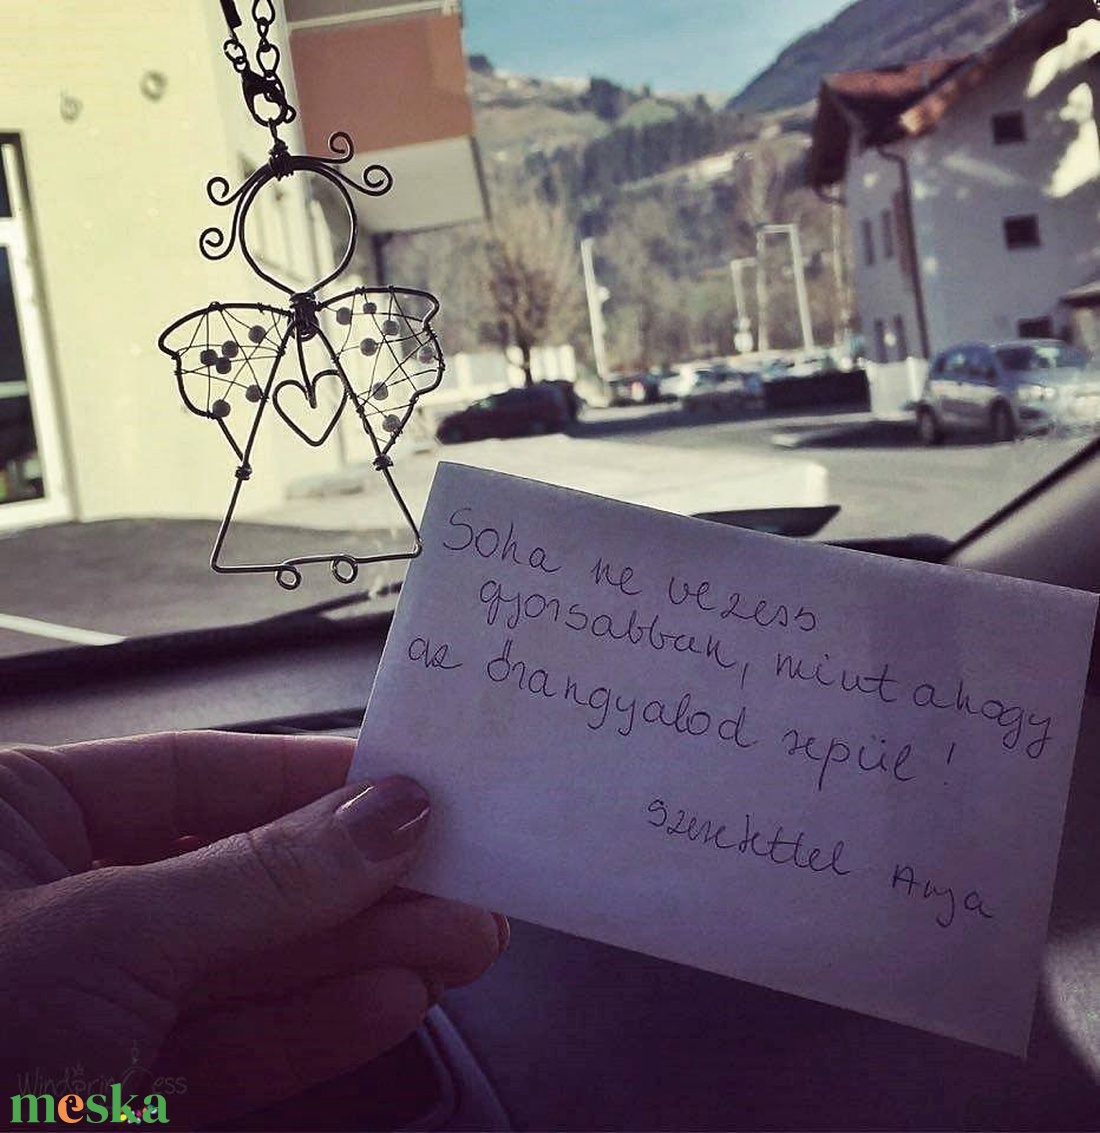 Soha ne vezess
gyorsabban, mint ahogy
az őrangyalod repül!
Szeretettel Anya
Windprincess
meska